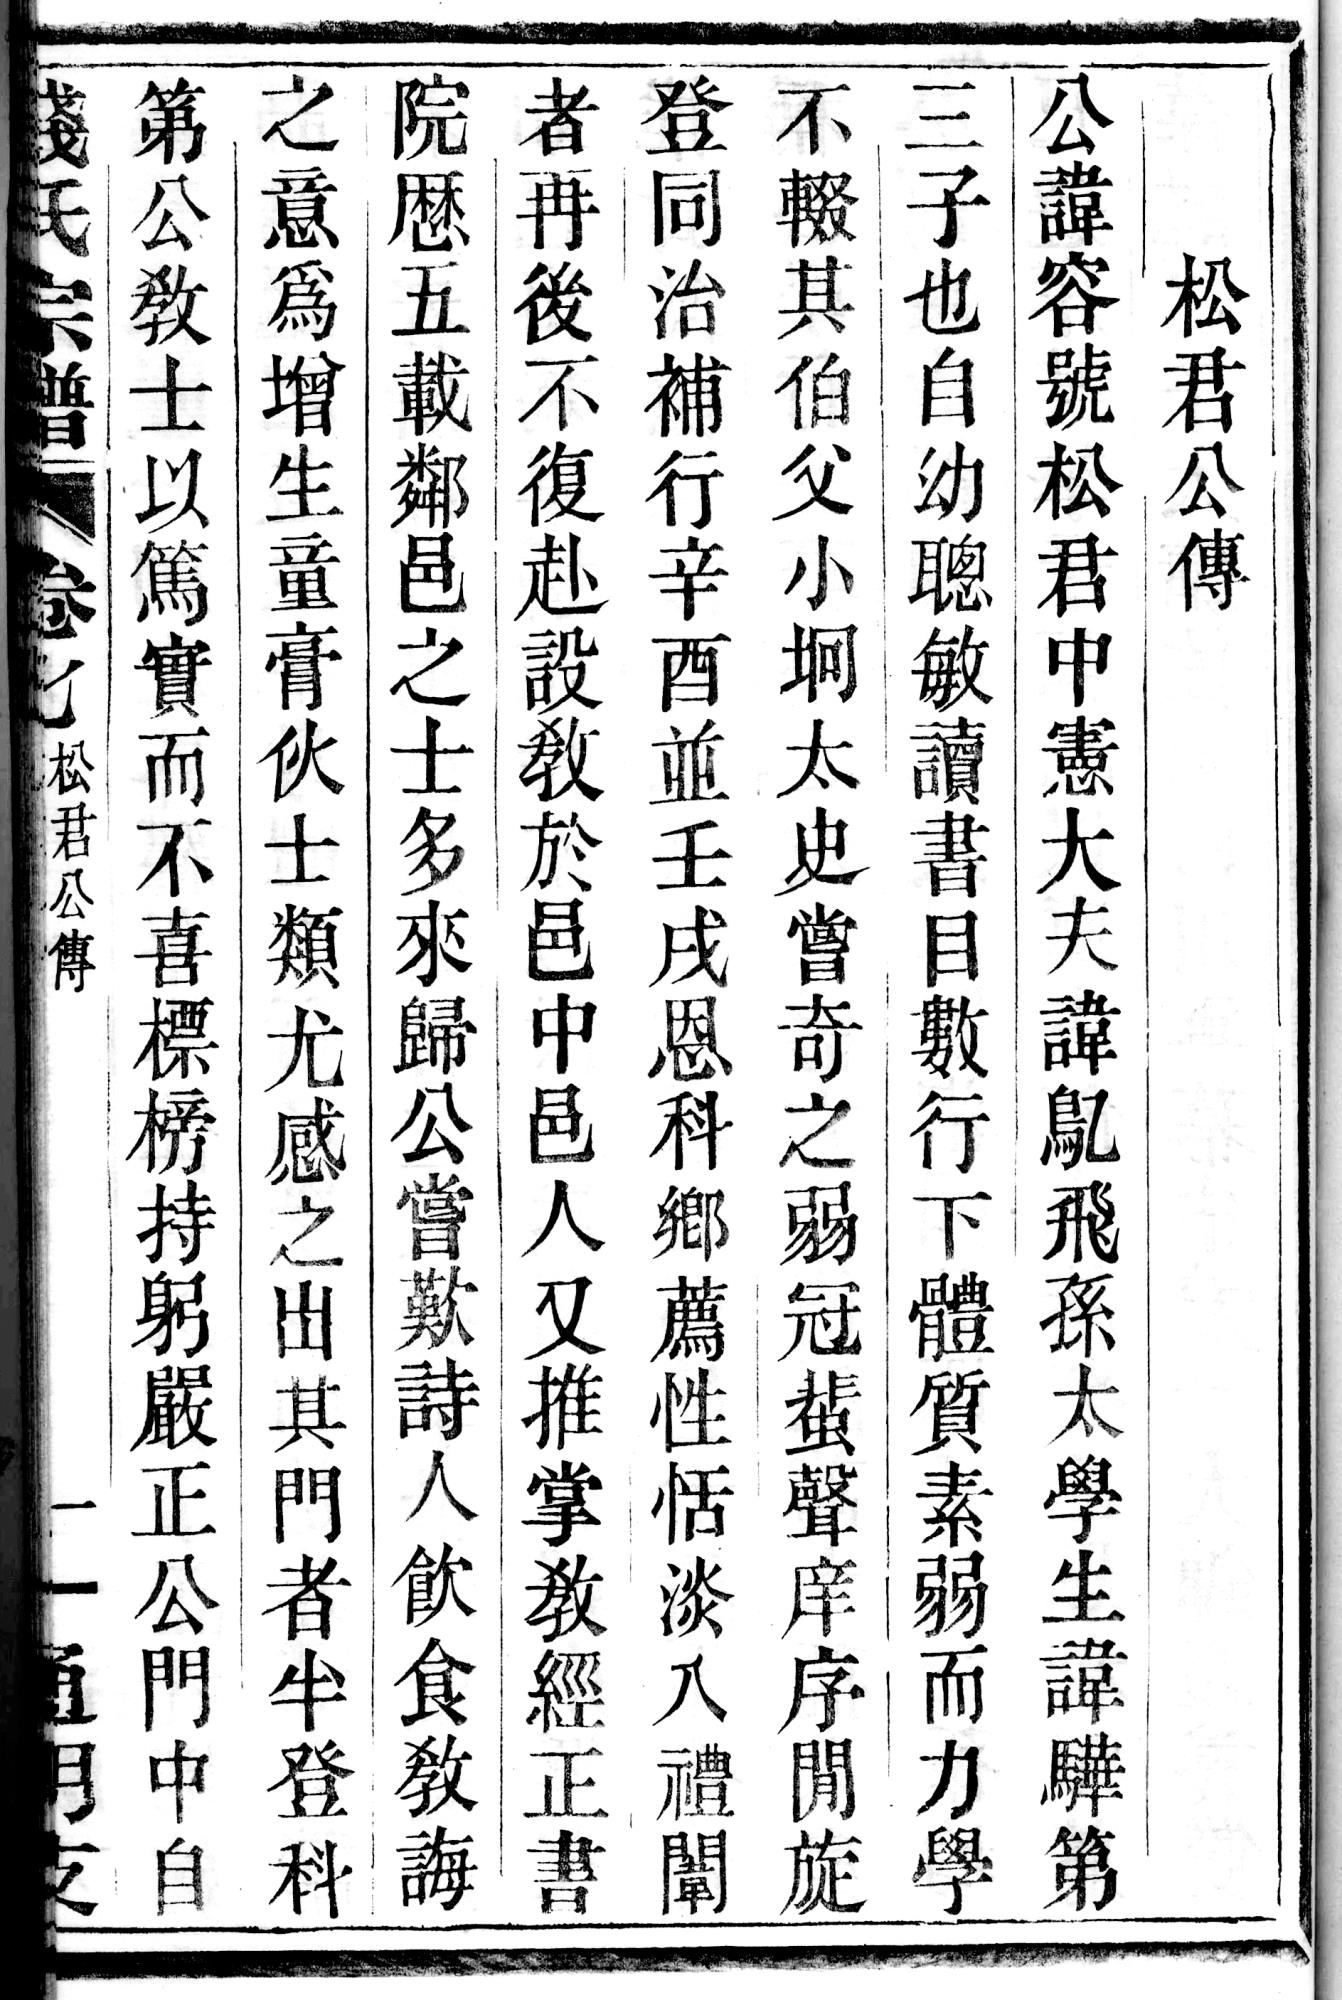 松君公傳
公諱容號松君中憲大夫諱鳦飛孫太學生諱驊第
三子也自幼聰敏讀書目數行下體質素弱而力學
不輟其伯父小坰太史嘗奇之弱冠蜚聲庠序閒旋
登同治補行辛酉並壬戌恩科鄉薦性恬淡入禮闈
者再後不復赴設敎於邑中邑人又推掌敎經正書
院歴五載鄰邑之士多來歸公嘗歎詩人飮食敎誨
之意爲增生童膏伙士類尤感之出其門者半登科
第公敎士以篤實而不喜標榜持躬嚴正公門中自
錢氏宗譜
卷七
松君公傳
一
通明支